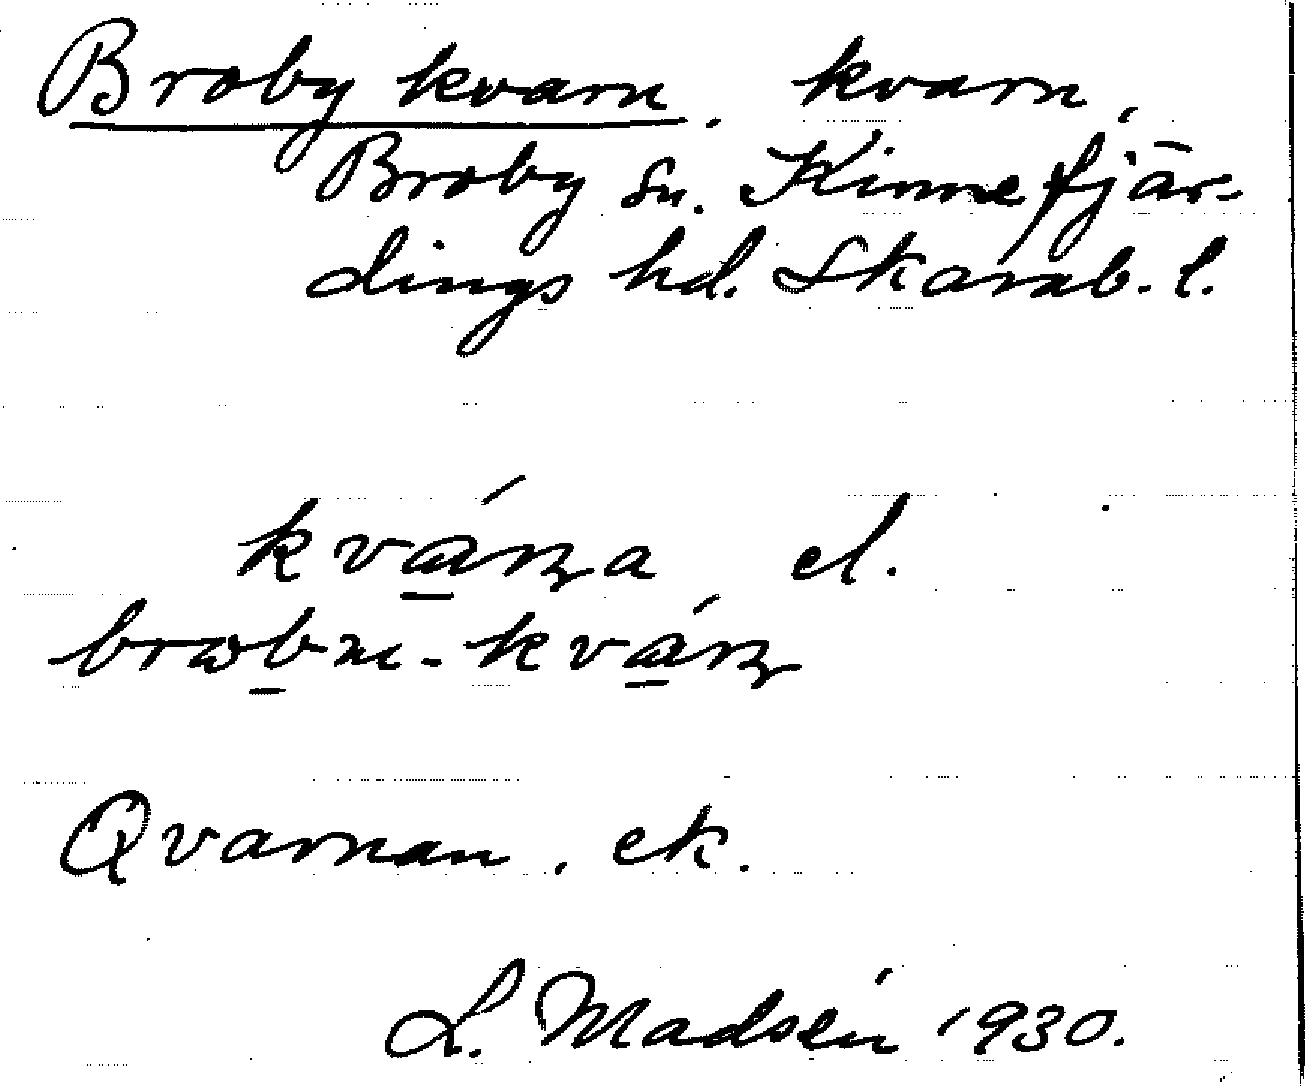 Broby kvarn, kvarn,
Broby sn. Kinnefjär-
dings hd. Skarab. l.
kvárna el.
Qvarnan, ek.
L. Madsén 1930.